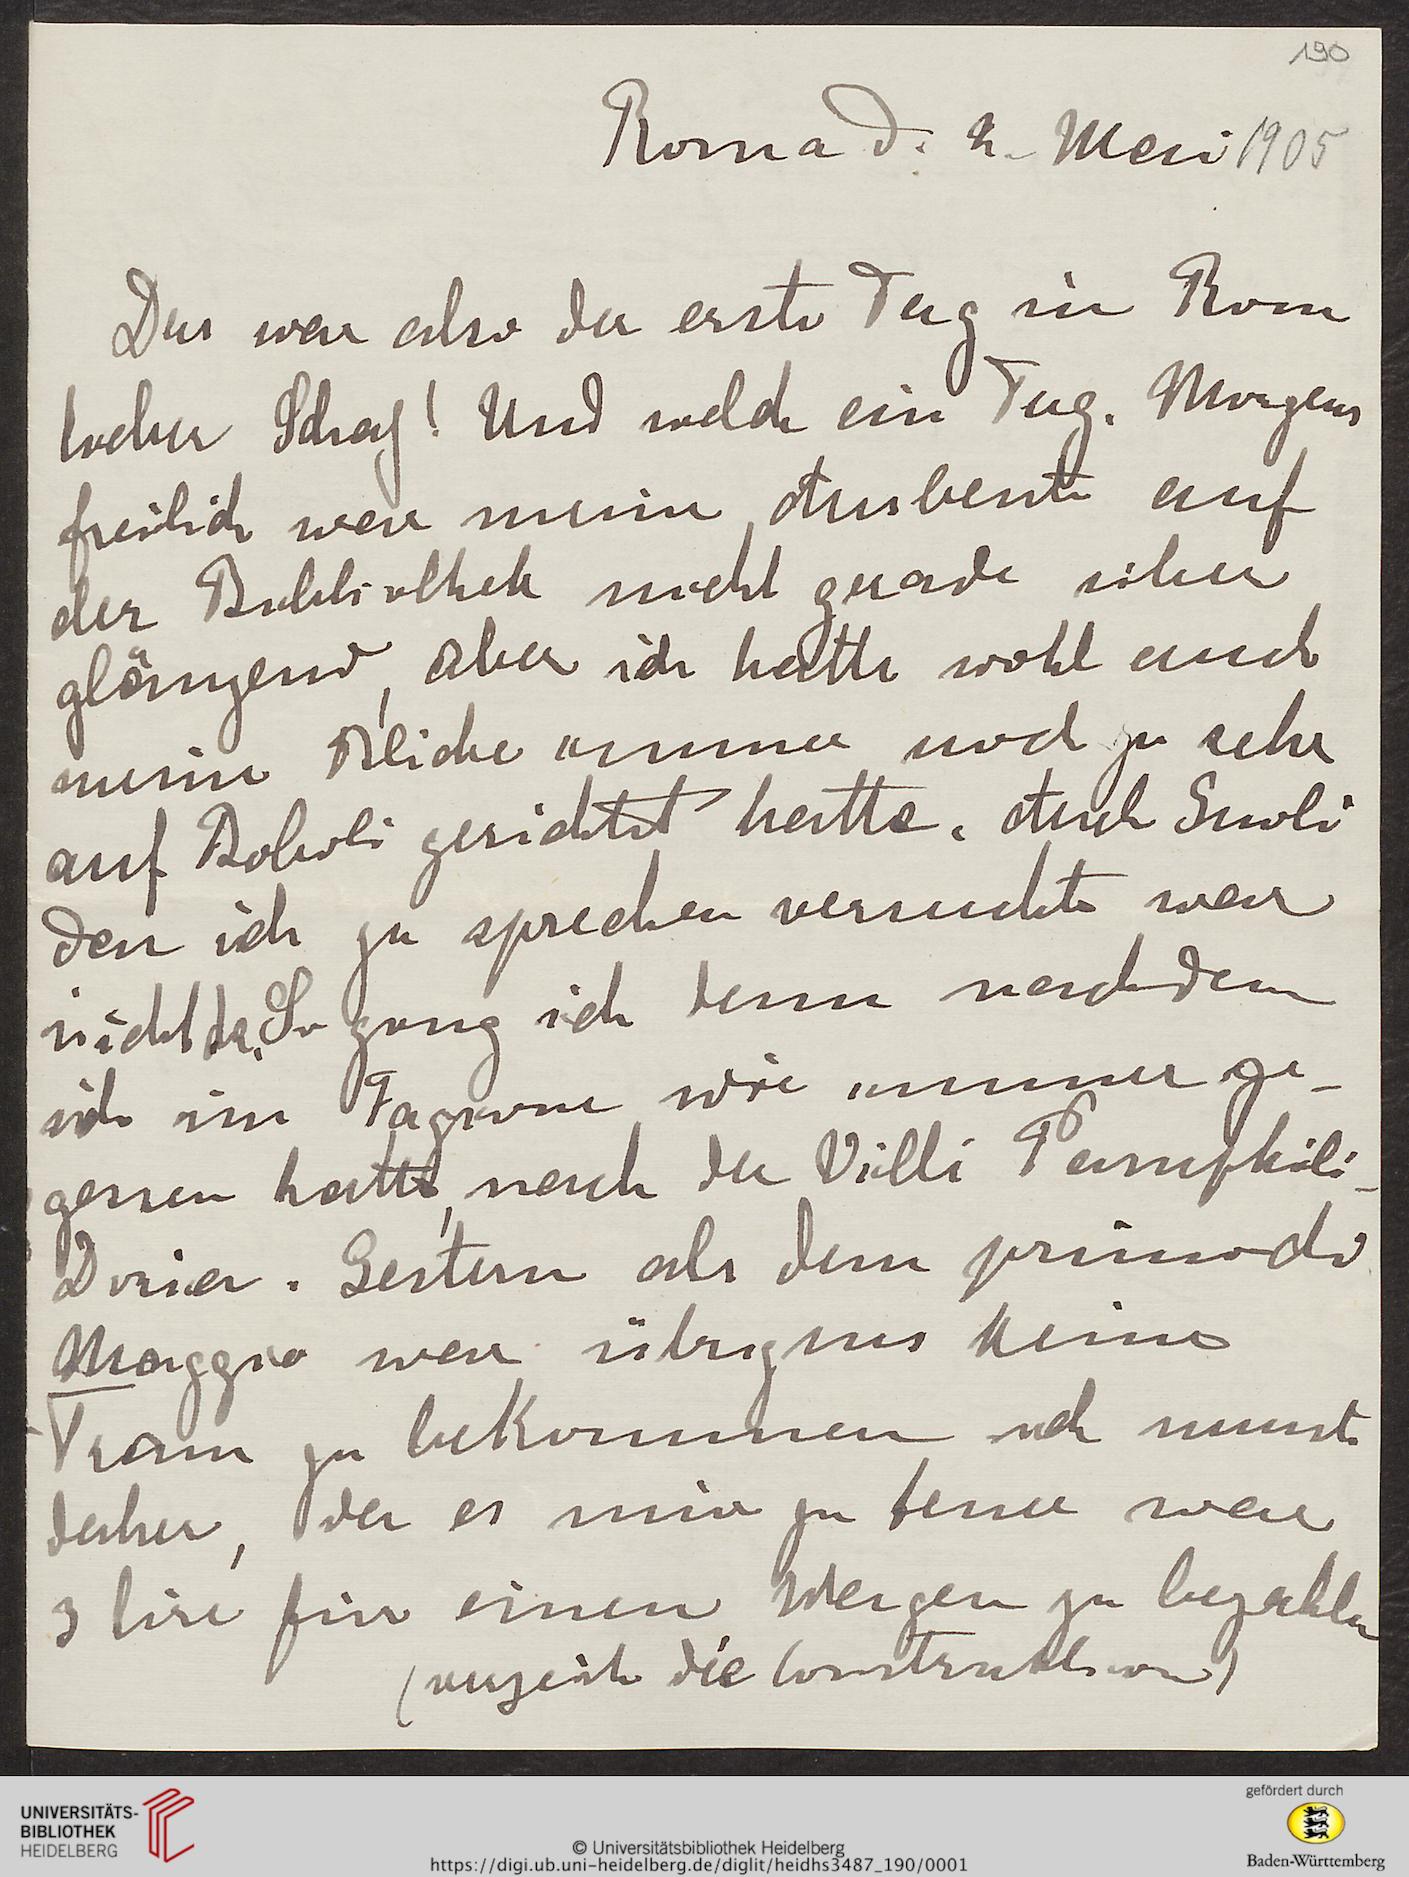 190
Roma d. 2. Mai 1905
Das war also der erste Tag in Rom
lieber Schatz! Und welch ein Tag. Morgens
freilich war meine Ausbeute auf
der Bibliothek nicht gerade über
glänzend, aber ich hatte wohl auch
meine Blicke immer noch zu sehr
auf Boboli gerichtet hatte. Auch
den ich zu sprechen versuchte war
nicht da. So ging ich denn nachdem
ich im Fagiano wie immer ge-
gessen hatte, nach der Villa Pamphili-
Doria. Gestern als dem primo di
Maggio war übrigens keine
Tram zu bekommen ich musste
daher, da es mir zu teuer war
3 lire für einen Wagen zu bezahlen
(verzeih die Construktion)
UNIVERSITÄTS-
BIBLIOTHEK
HEIDELBERG
gefördert durch
Baden-Württemberg
© Universitätsbibliothek Heidelberg
https://digi.ub.uni-heidelberg.de/diglit/heidhs3487_190/0001